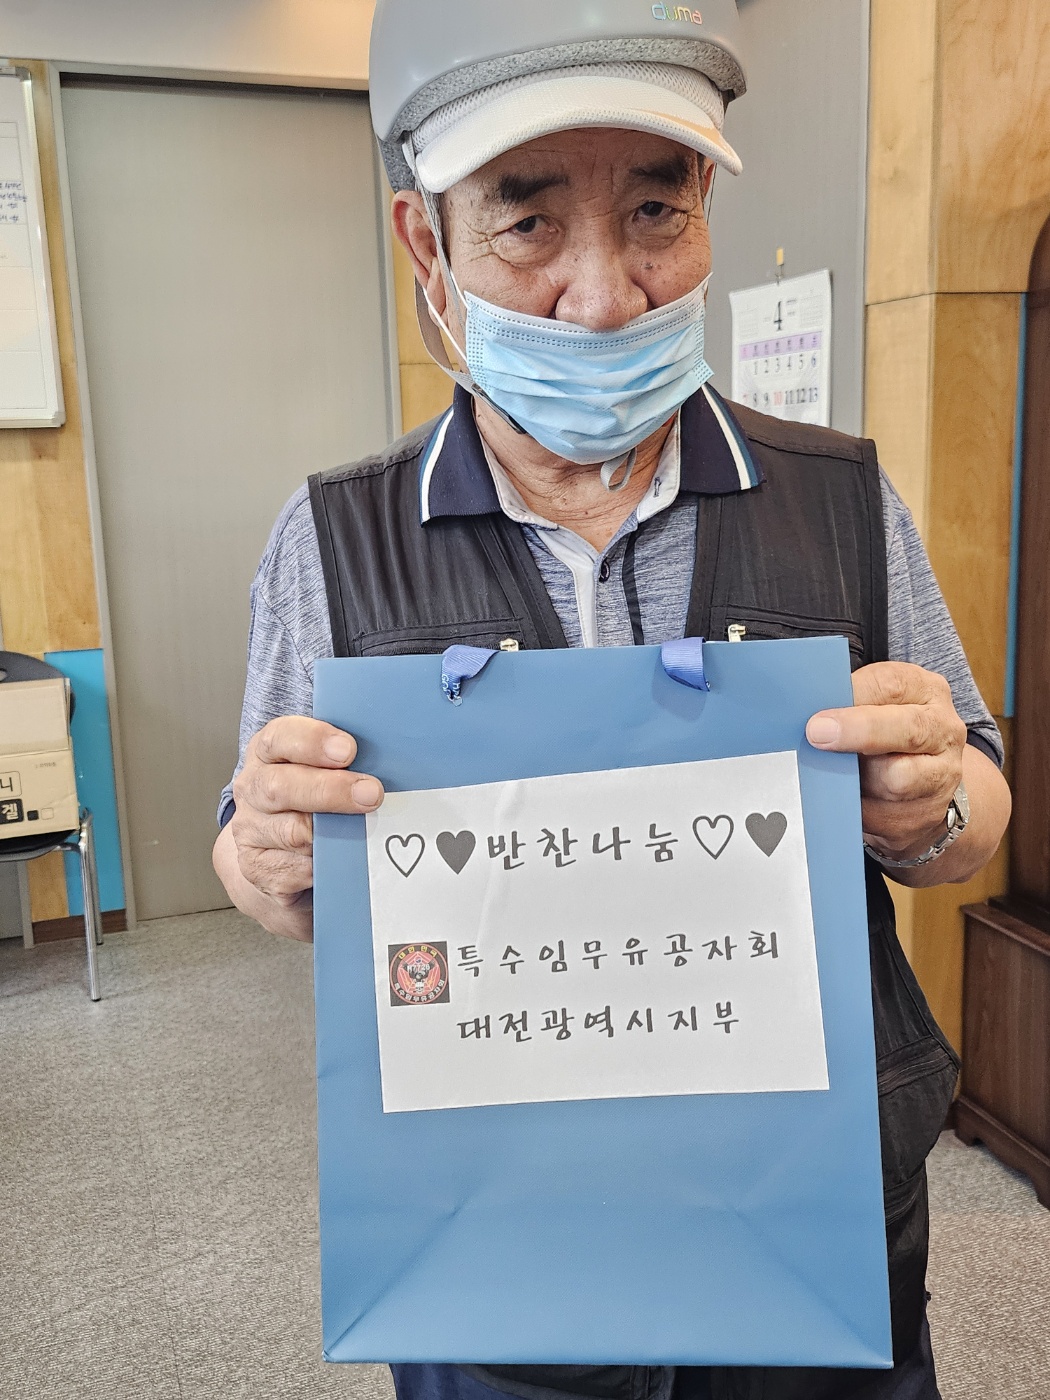 duma
4
1 2 3 4 5 6
7 8 9 10 11 12 13
♡♥반찬나눔♡♥
특수임무유공자회
대전광역시지부
니